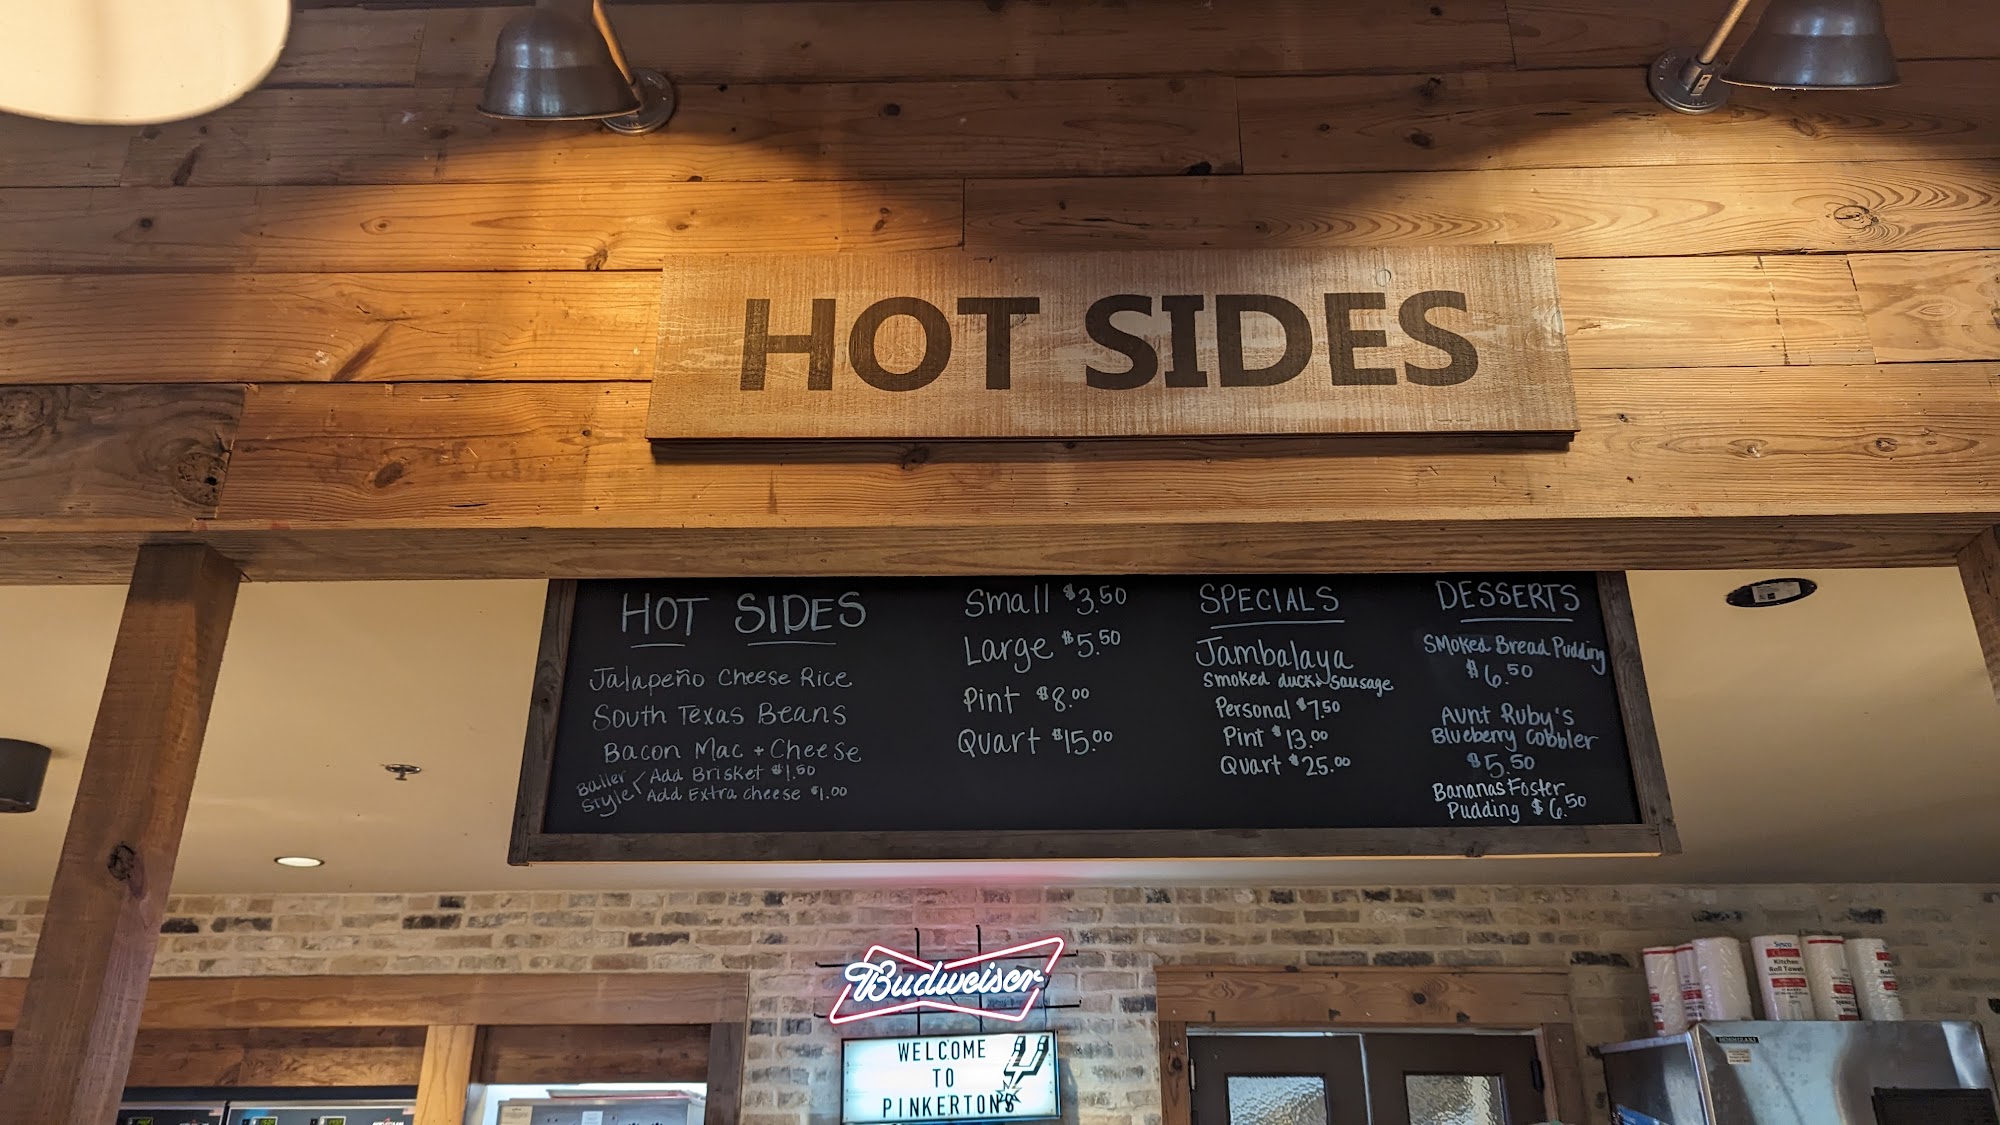 HOT SIDES
HOT SIDES
Jalapeño Cheese Rice
South Texas Beans
Bacon Mac + Cheese
Baller Style
Add Brisket $1.50
Add Extra Cheese $1.00
Small $3.50
Large $5.50
Pint $8.00
Quart $15.00
SPECIALS
Jambalaya
Smoked duck + Sausage
Personal $7.50
Pint $13.00
Quart $25.00
DESSERTS
Smoked Bread Pudding
$6.50
Aunt Ruby's
Blueberry Cobbler
$5.50
Bananas Foster
Pudding $6.50
Budweiser
WELCOME
TO
PINKERTONS
Sysco
Kitchen
Roll Towel
HOSHIZAKI